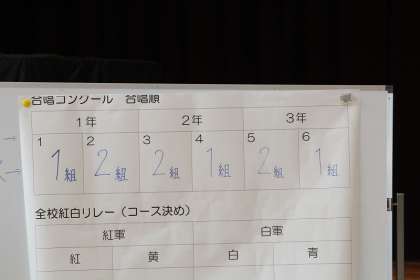 合唱コンクール 合唱順
1年 2年 3年
1 2 3 4 5 6
1組 2組 2組 1組 2組 1組
全校紅白リレー（コース決め）
紅軍 白軍
紅 黄 白 青